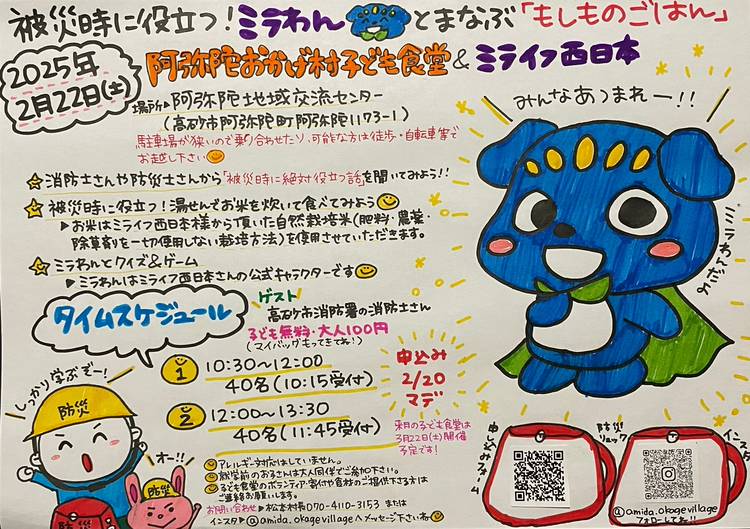 被災時に役立つ!ミラわんとまなぶ「もしものごはん」
2025年
2月22日(土)
阿弥陀おかげ村子ども食堂&ミライフ西日本
場所▶阿弥陀地域交流センター
(高砂市阿弥陀町阿弥陀1173-1)
駐車場が狭いので乗り合わせたり、可能な方は徒歩・自転車等で
お越し下さい
みんなあつまれー!!
消防士さんや防災士さんから「被災時に絶対役立つ話」を聞いてみよう!!
被災時に役立つ!湯せんでお米を炊いて食べてみよう
▶お米はミライフ西日本様から頂いた自然栽培米(肥料・農薬・
除草剤を一切使用しない栽培方法)を使用させていただきます。
ミラわんとクイズ&ゲーム
▶ミラわんはミライフ西日本さんの公式キャラクターです
ミラわんだよ
タイムスケジュール
ゲスト
高砂市消防署の消防士さん
子ども無料・大人100円
(マイバッグもってきてね!)
1 10:30~12:00
40名(10:15受付)
2 12:00~13:30
40名(11:45受付)
申込み
2/20
マデ
来月の子ども食堂は
3月22日(土)開催
予定です!
しっかり学ぶぞー!
防災
オー!!
防災
防災
アレルギー対応はしていません。
就学前のお子さんは大人同伴でご参加下さい。
子ども食堂のボランティア・寄付や食材のご提供下さる方は
ご連絡お願いします。
お問い合わせ▶松本村長070-4110-3153 または
インスタ▶@amida.okagevillageへメッセージ下さいね
申し込みフォーム
防災リュック
インスタ
@amida.okagevillage
フォローしてネ!!